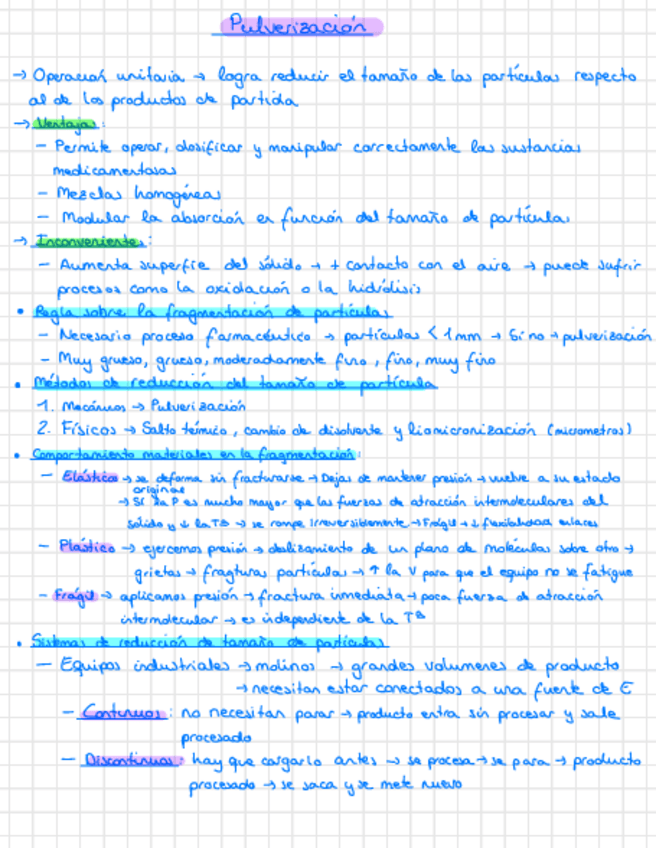 Pulverización
→ Operación unitaria → logra reducir el tamaño de las partículas respecto
al de los productos de partida
→ Ventajas:
- Permite operar, dosificar y manipular correctamente las sustancias
medicamentosas
- Mezclas homogéneas
- Modular la absorción en función del tamaño de partícula
→ Inconveniente:
- Aumenta superfie del sólido → + contacto con el aire → puede sufrir
procesos como la oxidación o la hidrólisis
• Regla sobre la fragmentación de partículas
- Necesario proceso farmacéutico → partículas < 1mm → Si no → pulverización
- Muy grueso, grueso, moderadamente fino, fino, muy fino
• Métodos de reducción del tamaño de partícula
1. Mecánicos → Pulverización
2. Físicos → Salto térmico, cambio de disolvente y liomicronización (micrometros)
• Comportamiento materiales en la fragmentación:
- Elástico → se deforma sin fracturarse → Dejas de mantener presión → vuelve a su estado
original
→ Si la P es mucho mayor que las fuerzas de atracción intermoleculares del
sólido y ↓ la Tª → se rompe irreversiblemente → Frágil → ↓ flexibilidad enlaces
- Plástico → ejercemos presión → deslizamiento de un plano de moléculas sobre otro →
grietas → fragturas partículas → ↑ la V para que el equipo no se fatigue
- Frágil → aplicamos presión → fractura inmediata → poca fuerza de atracción
intermolecular → es independiente de la Tª
• Sistemas de reducción de tamaño de partículas
- Equipos industriales → molinos → grandes volumenes de producto
→ necesitan estar conectados a una fuente de E
- Continuos: no necesitan parar → producto entra sin procesar y sale
procesado
- Discontinuos: hay que cargarlo antes → se procesa → se para → producto
procesado → se saca y se mete nuevo